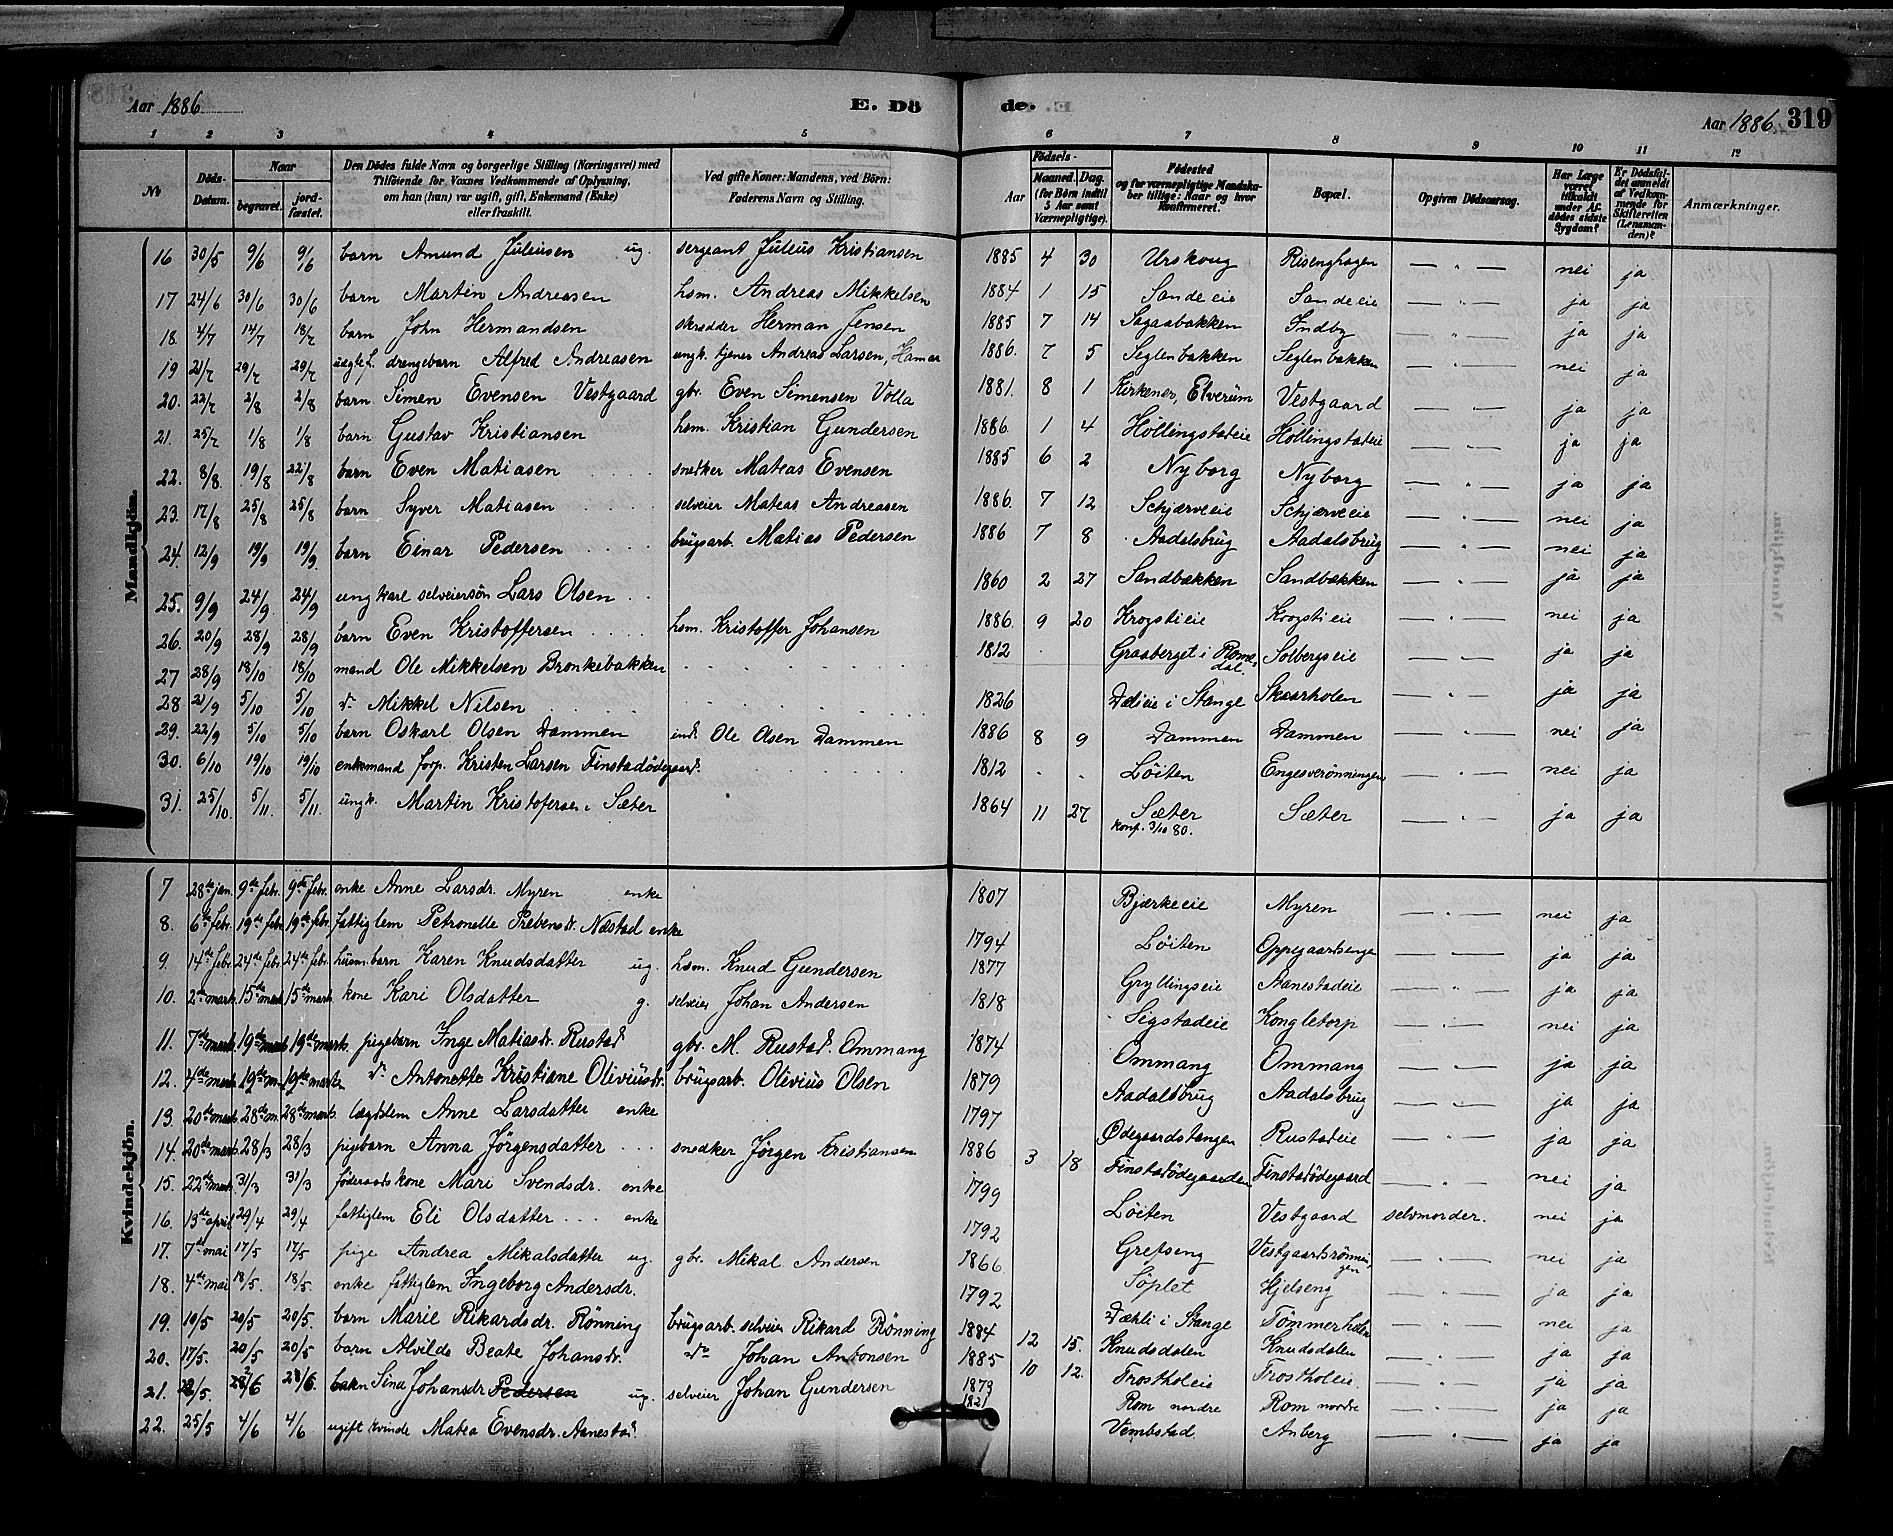 Aar 1886. E. Dö de. Aar 1886. 319
1 2 3 4 5 6 7 8 9 10 11 12
No Döds-Datum. Naar begravet. jordfæstet. Den Dödes fulde Navn og borgerlige Stilling (Næringsvei) med Tilföiende for Voxnes Vedkommende af Oplysning, om han (hun) var ugift, gift, Enkemand (Enke) eller fraskilt. Ved gifte Koner: Mandens, ved Börn: Faderens Navn og Stilling. Aar Födsels- Maaned. Dag. (for Börn indtil 5 Aar samt Værnepligtige). Födested og for værnepligtige Mandskaber tillige: Naar og hvor konfirmeret. Bopæl. Opgiven Dödsaarsag. Har Læge været tilkaldt under Afdödes sidste Sygdom? Er Dödsfaldet anmeldt af Vedkommende for Skifteretten (Lensmanden)? Anmærkninger.
Mandkjön.
16 30/5 9/6 9/6 barn Amund Juliusen ug. sergeant Julius Kristiansen 1885 4 30 Urskoug Risenghagen — " — nei ja
17 24/6 30/6 30/6 barn Martin Andreasen hsm. Andreas Mikkelsen 1884 1 15 Sande eie Sande eie — " — ja ja
18. 4/7 14/7 18/7 barn John Hermandsen skrædder Herman Jensen 1885 7 14 Sagaabakken Indby " ja ja
19 21/7 29/7 29/7 uægte f. drengebarn Alfred Andreasen ungk. tjener Andreas Larsen, Hamar 1886. 7 5 Seglenbakken Seglenbakken — " — nei ja
20. 22/7 2/8 2/8 barn Simen Evensen Vestgaard gbr. Even Simensen Volla 1881. 8 1 Kirkener, Elverum Vestgaard — " — ja ja
21. 25/7 1/8 1/8 barn Gustav Kristiansen hsm. Kristian Gundersen 1886. 1 4 Höllingstadeie Höllingstadeie — " — ja ja
22. 8/8. 19/8 22/8 barn Even Matiasen snedker Mateas Evensen 1885 6 2 Nyborg Nyborg — " — ja ja
23. 17/8 25/8 25/8 barn Syver Matiasen selveier Mateas Andreasen 1886. 7 12 Schjærveeie Schjærveeie — " — nei ja
24. 12/9 19/9 19/9. barn Einar Pedersen brugsarb. Matias Pedersen 1886 7 8 Aadalsbrug Aadalsbrug — " — nei ja
25. 9/9 24/9 24/9 ungkarl selveiersön Lars Olsen 1860 2 27 Sandbakken Sandbakken — " — ja ja
26. 20/9 28/9 28/9 barn Even Kristoffersen hsm. Kristoffer Johansen 1886. 9 20 Krogstieie Krogstieie — " — nei ja
27 28/9 18/10 18/10 mand Ole Mikkelsen Bronkebakken 1812 Graaberget i Romedal. Solbergseie — " — ja ja
28 21/9 5/10 5/10 do Mikkel Nilsen 1826 Dæleie i Stange Skaarholen — " — ja ja
29. 22/9 5/10 5/10 barn Oskarl Olsen Dammen inds. Ole Olsen Dammen 1886 8 9 Dammen Dammen — " — nei ja
30. 6/10 19/10 19/10 enkemand forp. Kristen Larsen Finstadödegaard. 1812 Löiten Engesverönningen — " — nei ja
31. 25/10 5/11. 5/11. ungk. Martin Kristofersen Sæter 1864 11 27 Sæter konf. 3/10 80. Sæter — " — ja ja
Kvindekjön.
7 28de jan. 9de febr. 9de febr. enke Anne Larsdr. Myren enke 1807 Bjærkeeie Myren — " — nei ja
8. 6te febr. 19de febr. 19de febr. fattiglem Petronelle Prebensdr. Næstad enke 1794 Löiten Oppegaardsenga — " — ja ja
9. 14de febr. 24de febr. 24de febr. husm. barn Karen Knudsdatter ug. hsm. Knud Gundersen 1877 Gryllingseie Aanestadeie — " — ja ja
10. 2den marts 15de marts 15de marts. kone Kari Olsdatter g. selveier Johan Andersen 1818 Sigstadeie Kongletorp — " — nei ja
11. 7de marts 19de marts 19de marts. pigebarn Inge Matiasdr. Rustad gbr. M. Rustad. Ommang 1874 Ommang Ommang — " — ja ja
12. 4de marts 19de m. 19de marts do Antonette Kristiane Oliviusdr. brugsarb. Olivius Olsen 1879 Aadalsbrug Aadalsbrug — " — ja ja
13. 20de marts 28de m. 28de marts. lægdslem Anne Larsdatter enke 1797 Ödegaardstangen Rustadeie — " — ja ja
14. 20de marts. 28/3 28/3 pigebarn Anna Jörgensdatter snedker Jörgen Kristiansen 1886 3 18 Finstadödegaarden Finstadödegaard — " — nei ja
15. 22de marts. 31/3 31/3 föderaadskone Mari Svendsdr. enke 1799 Löiten Vestgaard selvmorder. nei ja
16. 13de april 29/4 29/4 fattiglem Eli Olsdatter enke 1792 Grefseng Vestgaardsrönningen — " — nei ja
17. 7de mai 17/5 17/5 pige Andrea Mikalsdatter ug. gbr. Mikal Andersen 1866 Söplet Hjelseng — " — ja ja
18. 4de mai 18/5. 18/5. enke fattiglem Ingeborg Andersdr. 1792 Dæhli i Stange Tömmerholen — " — nei ja
19. 10/5 20/5 20/5. barn Marie Rikardsdr. Rönning brugsarb. selveier Rikard Rönning 1884 12 15. Knudsdalen Knudsdalen — " — ja ja
20. 17/5. 20/5 20/5 barn Alvilde Beate Johansdr. do Johan Antonsen 1885 10 12. Frostholeie Frostholeie. — " — ja ja
21. 22/5. 2/6 2/6. barn Sina Johansdr. Pedersen ug. selveier Johan Gundersen 1873 Rom nordre Rom nordre — " — ja ja
22. 25/5 4/6 4/6 ugift kvinde Matea Evensdr. Aanestad. 1821 Vembstad Anberg — " — ja ja